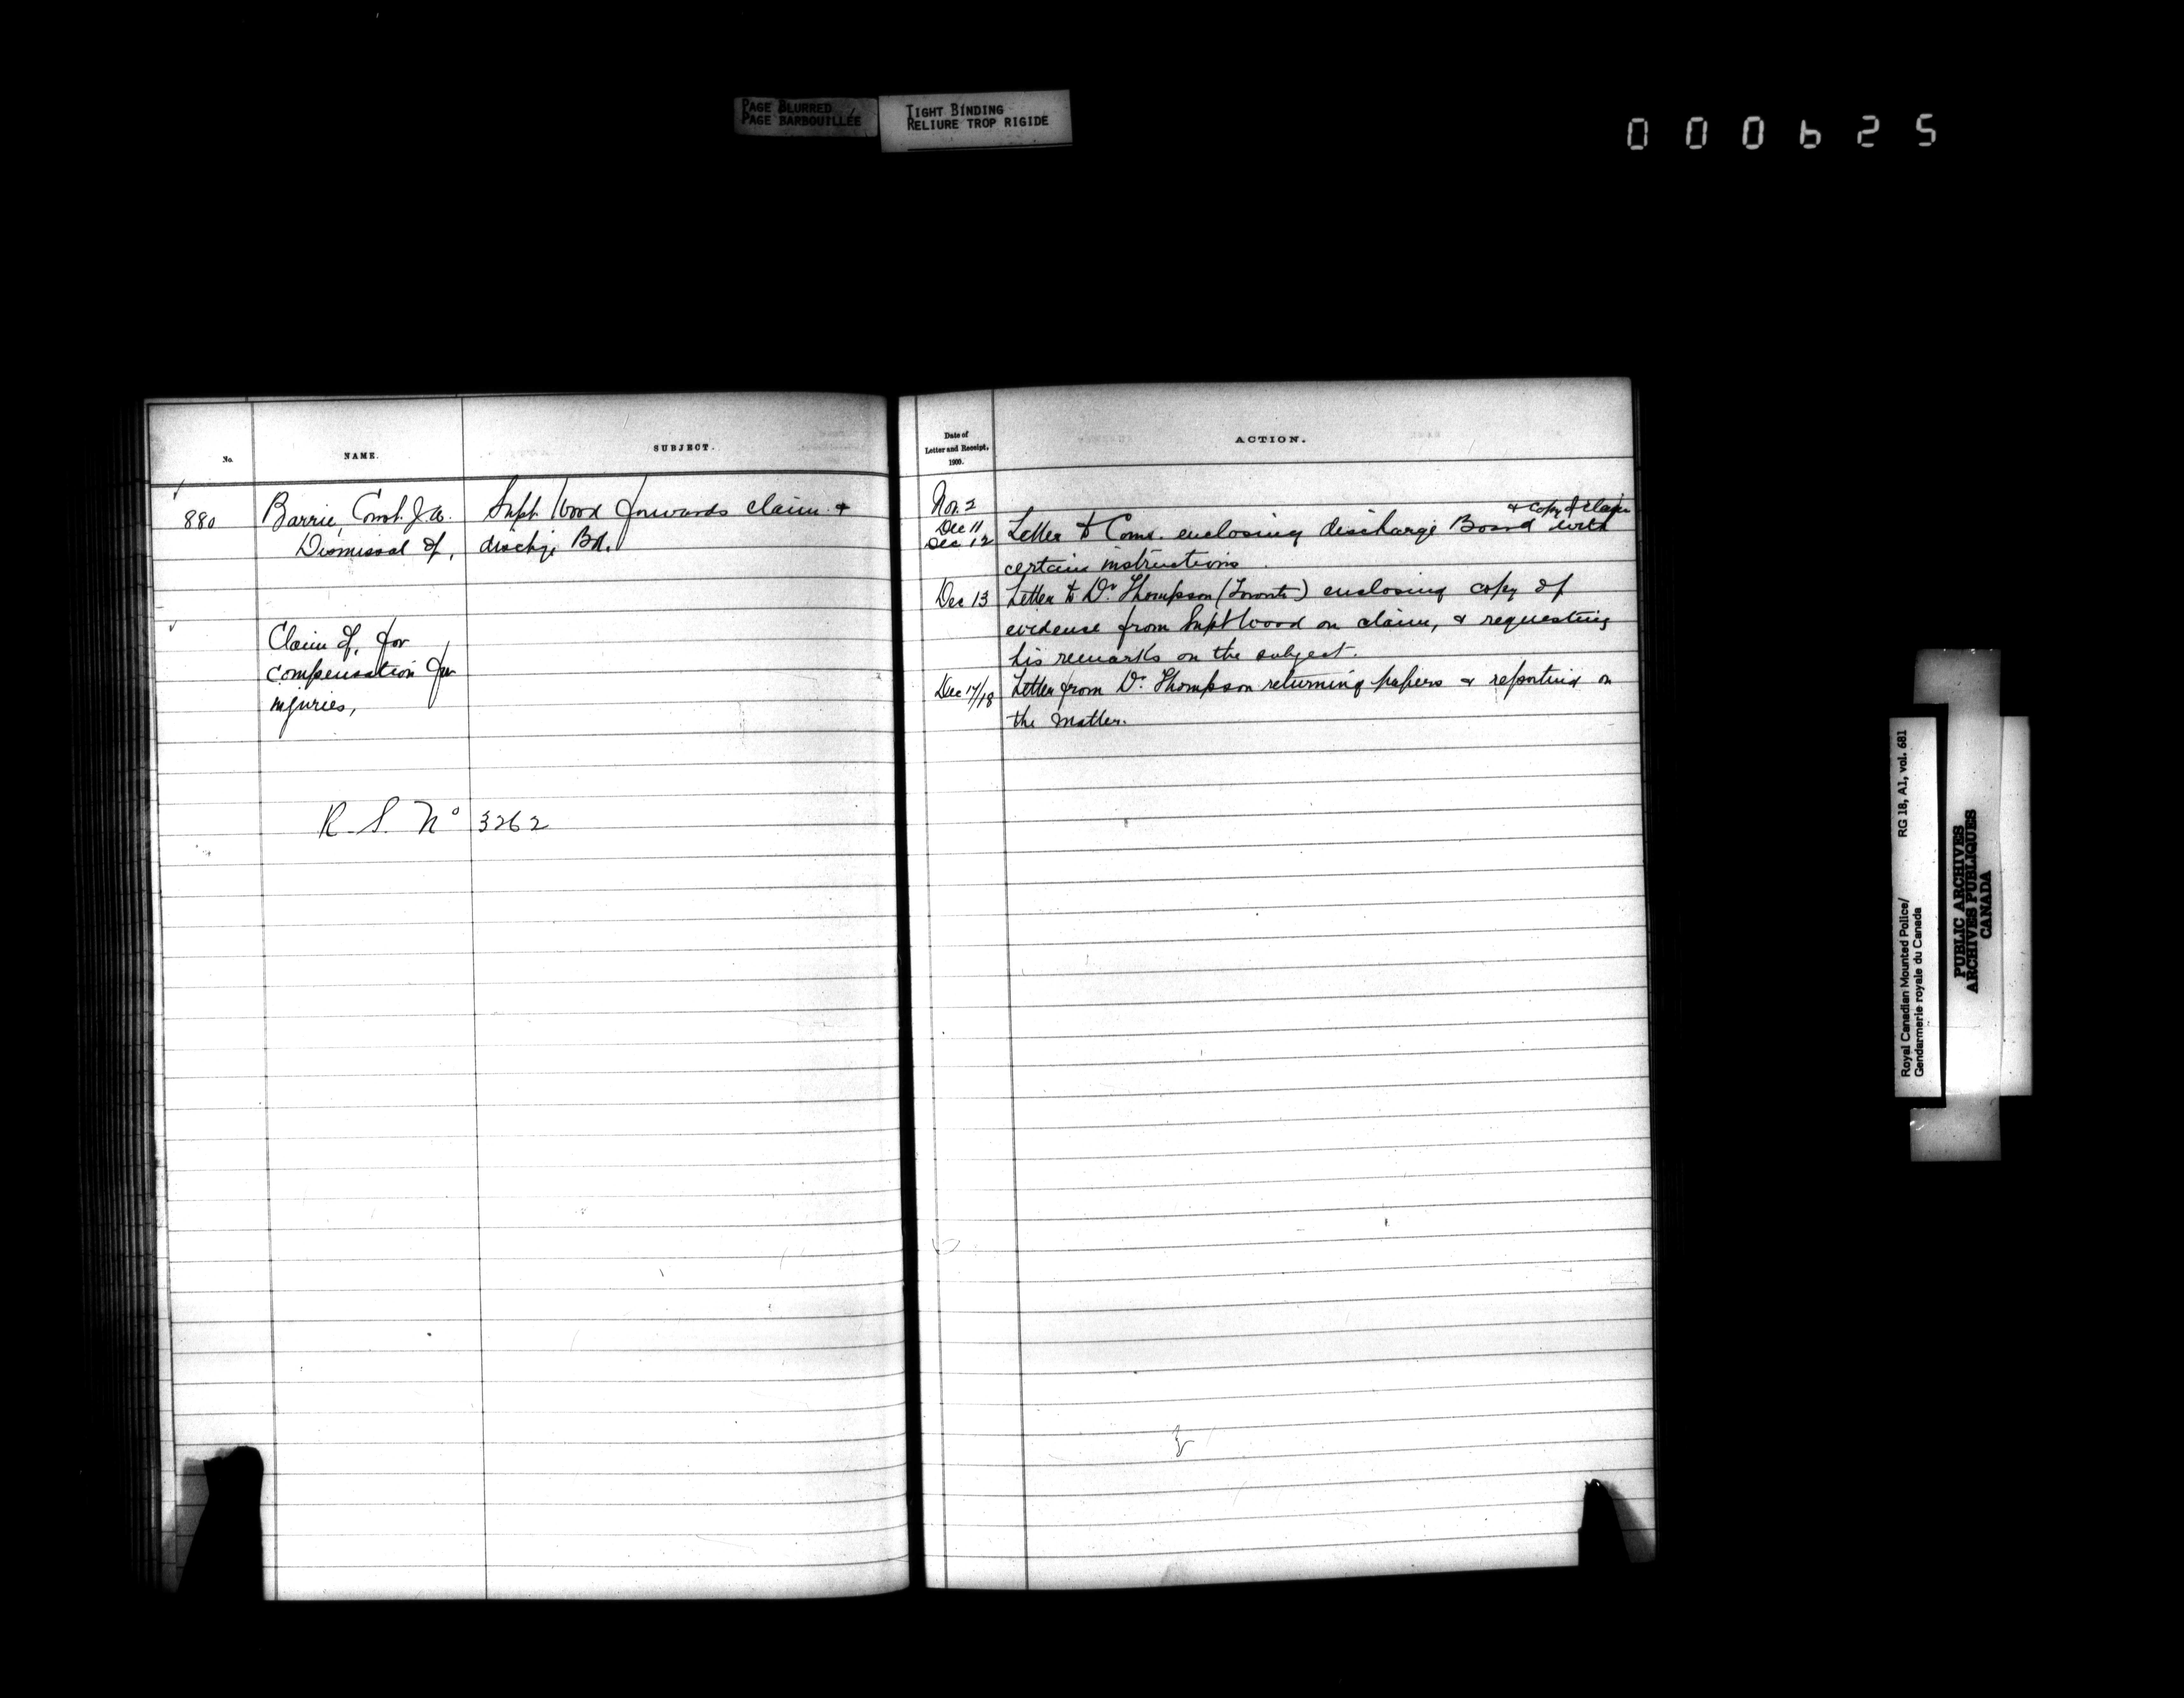 PAGE BLURRED
PAGE BARBOUILLÉE
TIGHT BINDING
RELIURE TROP RIGIDE
000625
No.
NAME.
SUBJECT.
880
Barrie, Const. J.W.
Supt. Wood forwards claim &
Dismissal of,
dischge Bd.
Claim of, for
compensation for
injuries,
R.S. No 3262
Date of
Letter and Receipt,
1900.
ACTION.
Nov. 2
Dec 11
& copy of claim
Dec 12
Letter to Comr. enclosing discharge Board with
certain instructions
Dec 13
Letter to Dr. Thompson (Toronto) enclosing copy of
evidence from Supt Wood on claim, & requesting
his remarks on the subject.
Dec 17/18
Letter from Dr. Thompson returning papers & reporting on
the matter.
Royal Canadian Mounted Police/
Gendarmerie royale du Canada
RG 18, A1, vol. 681
PUBLIC ARCHIVES
ARCHIVES PUBLIQUES
CANADA